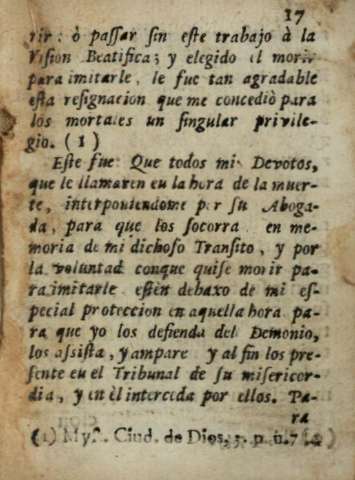 17
rir: ò paſſar ſin eſte trabajo à la
Viſion Beatifica; y elegido el morir
para imitarle, le fue tan agradable
eſta reſignacion que me concediò para
los mortales un ſingular privile-
gio. (1)
Eſte fue Que todos mis Devotos,
que le llamaren en la hora de la muer-
te, interponiendome por ſu Aboga-
da, para que los ſocorra en me-
moria de mi dichoſo Tranſito, y por
la voluntad conque quiſe morir pa-
ra imitarle eſtèn debaxo de mi eſ-
pecial proteccion en aquella hora pa-
ra que yo los defienda del Demonio,
los aſſiſta, y ampare y al fin los pre-
ſente en el Tribunal de ſu miſericor-
dia, y en èl interceda por ellos. Pa-
ra
(1) Myſ. Ciud. de Dios. 3. p. n. 7